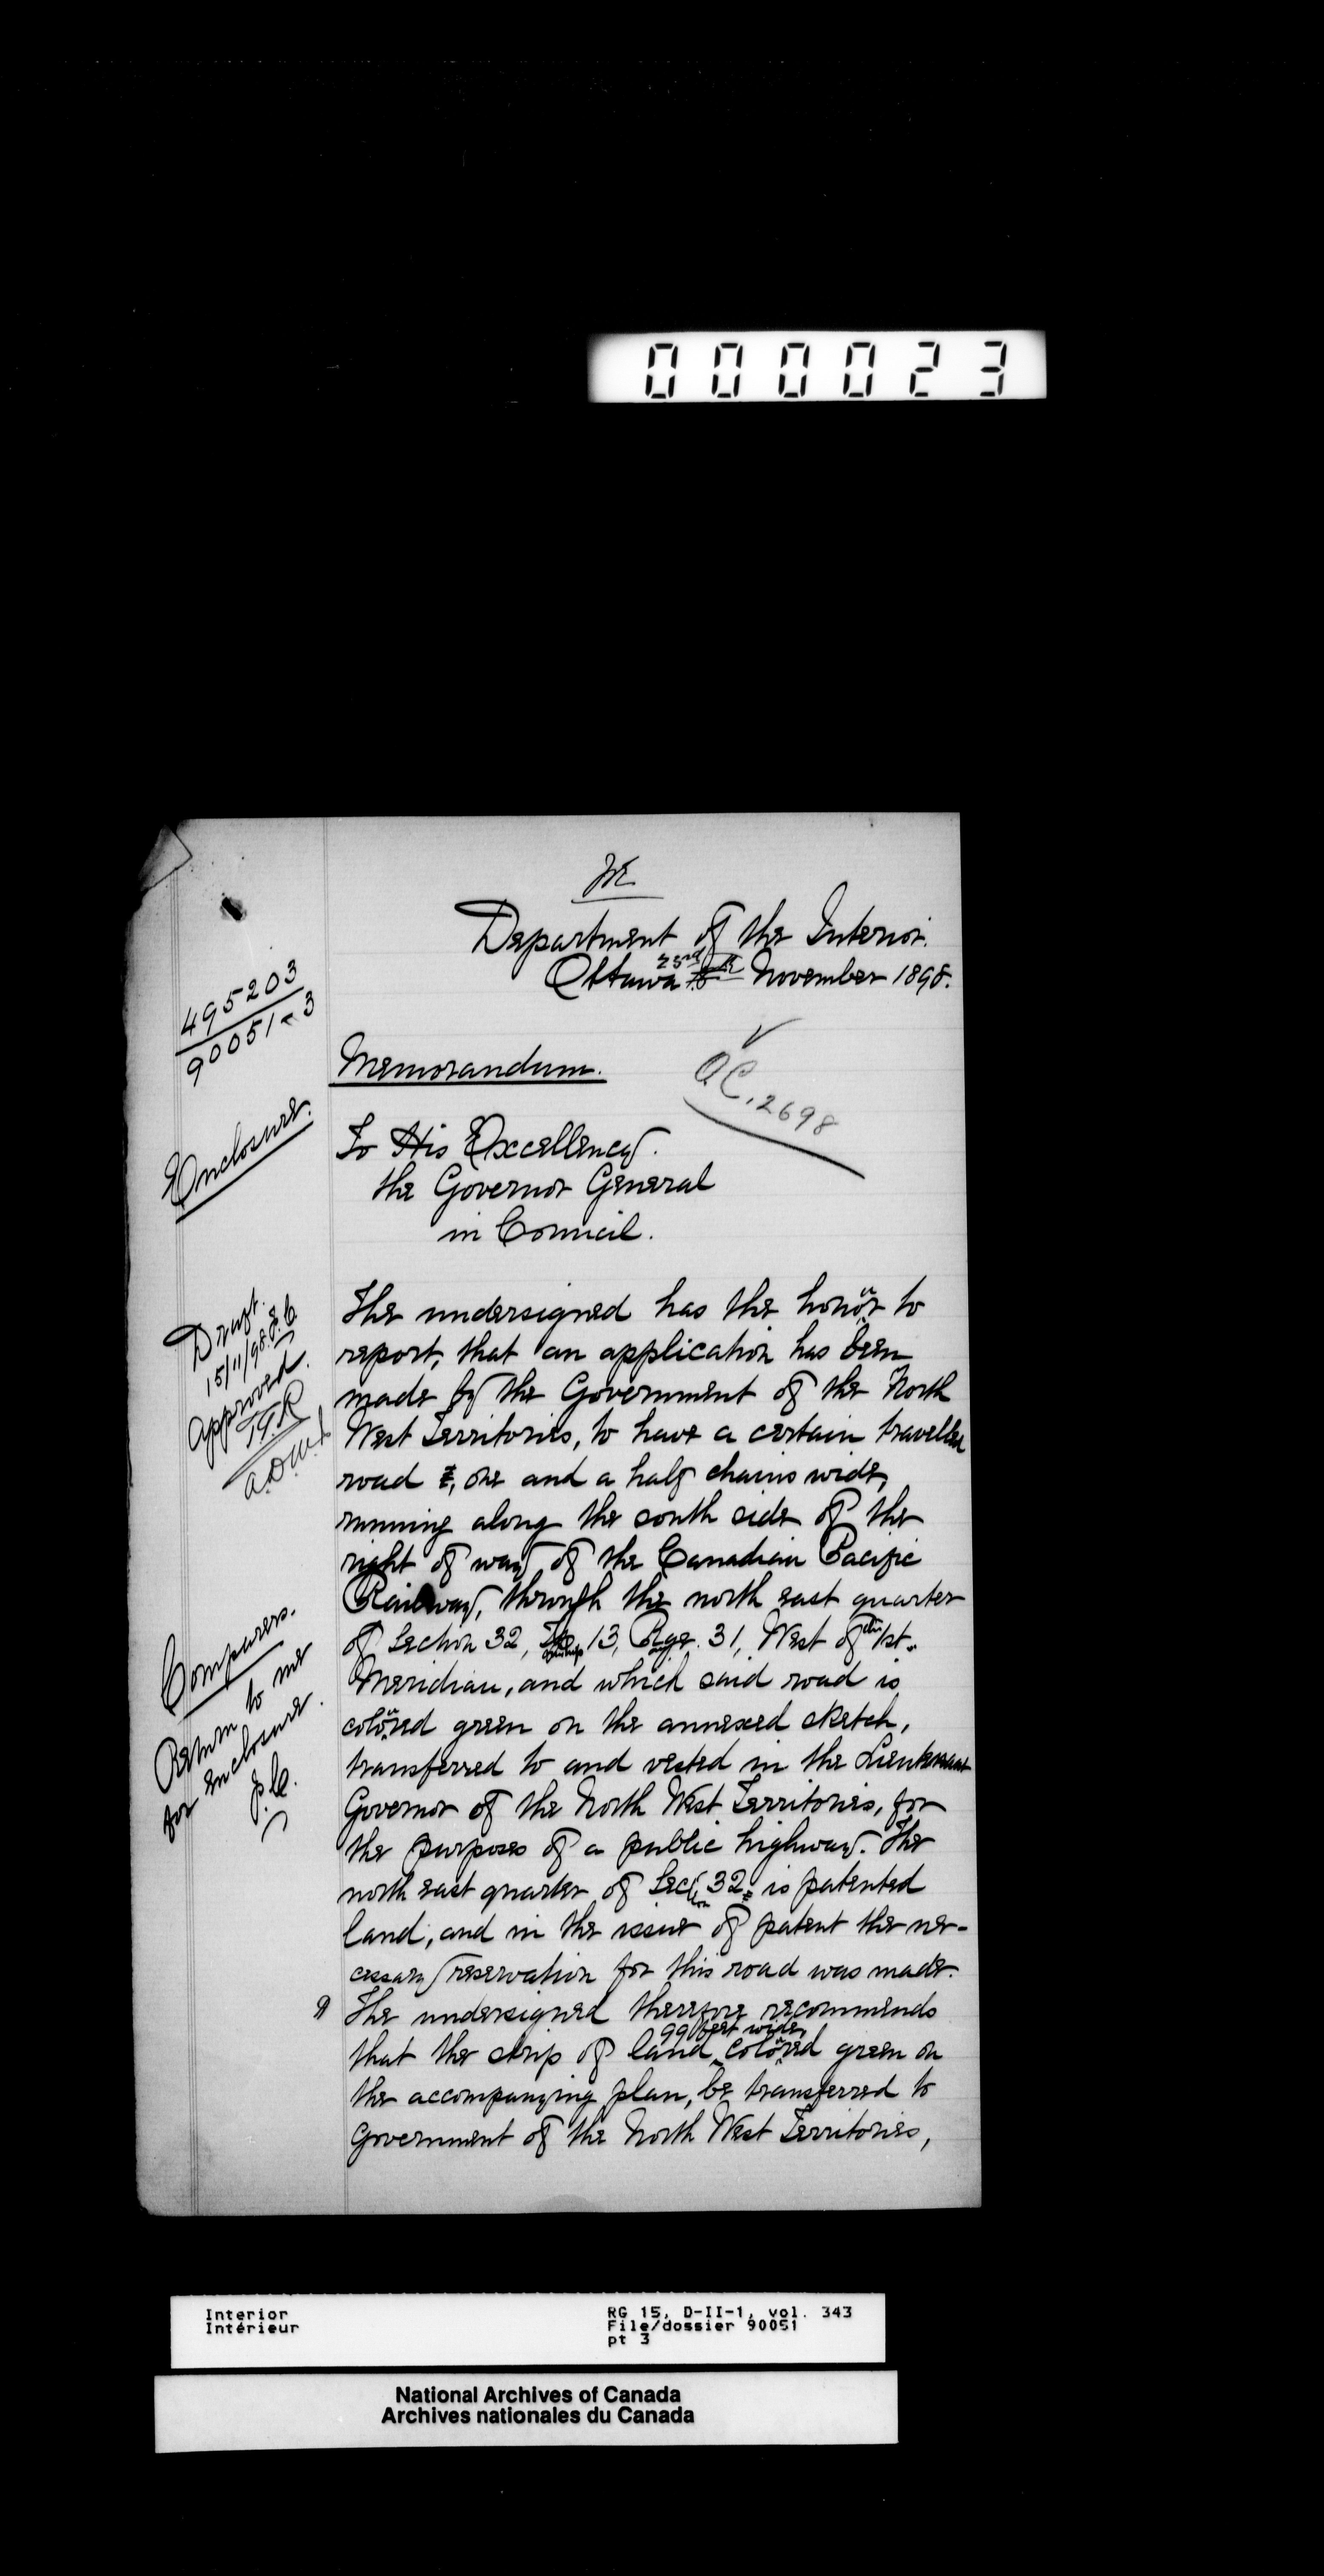 000023
Department of the Interior.
Ottawa 23rd November 1898.
495203
90051-3
Memorandum.
O.C. 2698
Enclosure.
To His Excellency
the Governor General
in Council.
Draft.
15/11/98. J.C
Approved.
A.D.M.I
The undersigned has the honour to
report, that an application has been
made by the Government of the North
West Territories, to have a certain travelled
road, one and a half chains wide,
running along the south side of the
right of way of the Canadian Pacific
Railway, through the north east quarter
of Section 32, Township 13, Range 31, West of the 1st
Meridian, and which said road is
coloured green on the annexed sketch,
transferred to and vested in the Lieutenant
Governor of the North West Territories, for
the purposes of a public highway. The
north east quarter of Section 32 is patented
land, and in the issue of patent the ne-
cessary reservation for this road was made.
The undersigned therefore recommends
that the strip of land 99 feet wide, coloured green on
the accompanying plan, be transferred to
Government of the North West Territories,
Comparers.
Return to me
for enclosure.
J.C.
Interior
Intérieur
RG 15, D-II-1, vol. 343
File/dossier 90051
pt 3
National Archives of Canada
Archives nationales du Canada